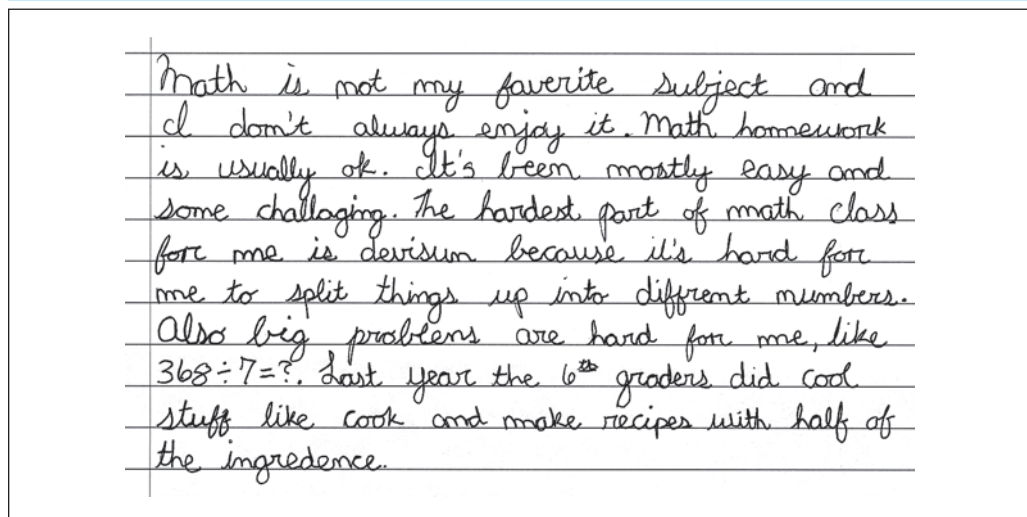 Math is not my faverite subject and
I don't always enjoy it. Math homework
is usually ok. It's been mostly easy and
some challaging. The hardest part of math class
for me is devisun because it's hard for
me to split things up into diffrent numbers.
Also big problems are hard for me, like
368÷7=?. Last year the 6th graders did cool
stuff like cook and make recipes with half of
the ingredence.